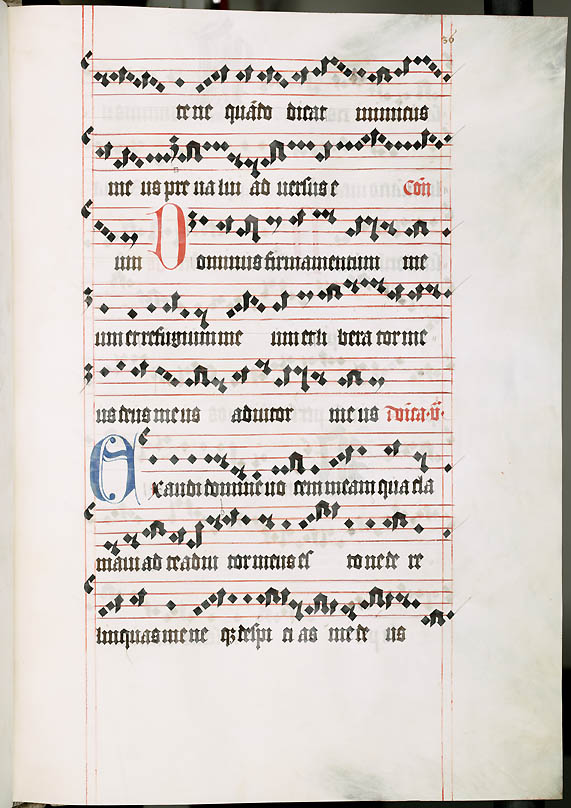 36
te ne quādo dicat inimicus
me us pre ua lui ad uersus e Cōn
um Dominus firmamentum me
um et refugium me um et li bera tor me
us deus me us adiutor me us Dn̄ica v̄
Exaudi domine uo cem meam qua cla
maui ad te adiu tor meus es to ne de re
linquas me ne qz despi ci as me de us